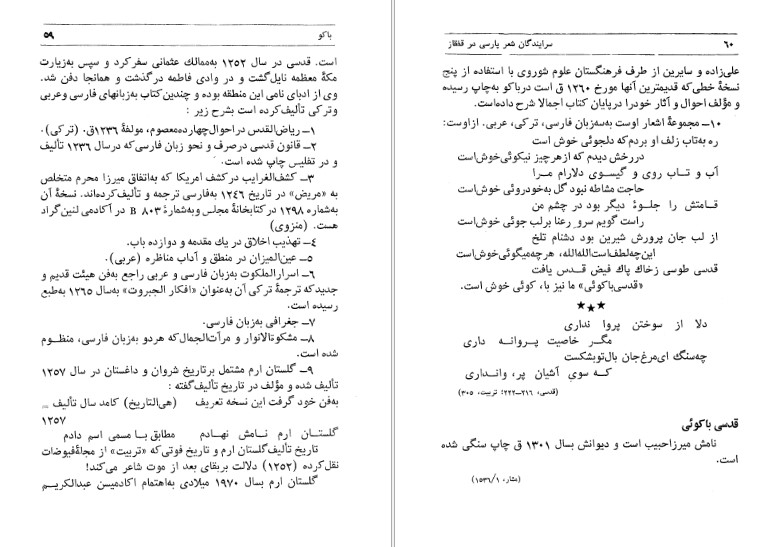 باکو
۵۹
است. قدسی در سال ۱۲۵۲ به‌ممالك عثمانی سفر کرد و سپس به‌زیارت
مکهٔ معظمه نایل گشت و در وادی فاطمه درگذشت و همانجا دفن شد.
وی از ادبای نامی این منطقه بوده و چندین کتاب به‌زبانهای فارسی و عربی
و ترکی تألیف کرده است بشرح زیر :
۱ــ ریاض‌القدس در احوال چهارده معصوم، مولفهٔ ۱۲۳۶ق. (ترکی).
۲ــ قانون قدسی در صرف و نحو زبان فارسی که در سال ۱۲۳۶ تألیف
و در تفلیس چاپ شده است.
۳ــ کشف‌الغرایب در کشف امریکا که به‌اتفاق میرزا محرم متخلص
به «مریض» در تاریخ ۱۲۴۶ به‌فارسی ترجمه و تألیف کرده‌اند. نسخهٔ آن
به‌شماره ۱۲۹۸ در کتابخانهٔ مجلس و به‌شمارهٔ ۸۰۳ B در آکادمی لنین‌گراد
هست. (منزوی)
۴ــ تهذیب اخلاق در یك مقدمه و دوازده باب.
۵ــ عین‌المیزان در منطق و آداب مناظره (عربی).
۶ــ اسرارالملکوت به‌زبان فارسی و عربی راجع به‌فن هیئت قدیم و
جدید که ترجمهٔ ترکی آن به‌عنوان «افکار الجبروت» به‌سال ۱۲۶۵ به‌طبع
رسیده است.
۷ــ جغرافی به‌زبان فارسی.
۸ــ مشکوةالانوار و مرآت‌الجمال که هردو به‌زبان فارسی، منظوم
شده است.
۹ــ گلستان ارم مشتمل بر تاریخ شروان و داغستان در سال ۱۲۵۷
تألیف شده و مؤلف در تاریخ تألیف گفته :
به‌فن خود گرفت این نسخه تعریف (هی‌التاریخ) کامد سال تألیف
۱۲۵۷
گلستان ارم نامش نهادم مطابق با مسمی اسم دادم
تاریخ تألیف گلستان ارم و تاریخ فوتی که «تربیت» از مجلهٔ فیوضات
نقل کرده (۱۲۵۲) دلالت بر بقای بعد از موت شاعر می‌کند!
گلستان ارم بسال ۱۹۷۰ میلادی به‌اهتمام اکادمیسن عبدالکریم
۶۰
سرایندگان شعر پارسی در قفقاز
علی‌زاده و سایرین از طرف فرهنگستان علوم شوروی با استفاده از پنج
نسخهٔ خطی که قدیمترین آنها مورخ ۱۲۶۰ ق است در باکو به‌چاپ رسیده
و مؤلف احوال و آثار خود را در پایان کتاب اجمالا شرح داده است.
۱۰ــ مجموعهٔ اشعار اوست به‌سه‌زبان فارسی، ترکی، عربی. ازاوست:
ره به‌تاب زلف او بردم که دلجوئی خوش‌است
در رخش دیدم که از هرچیز نیکوئی خوش‌است
آب و تاب روی و گیسوی دلارام مرا
حاجت مشاطه نبود گل به‌خودروئی خوش‌است
قامتش را جلوهٔ دیگر بود در چشم من
راست گویم سرو رعنا برلب جوئی خوش‌است
از لب جان پرورش شیرین بود دشنام تلخ
این‌چه‌لطف‌است‌الله‌الله، هرچه‌میگوئی خوش‌است
قدسی طوسی زخاك پاك فیض قدس یافت
«قدسی‌باکوئی» ما نیز با، کوئی خوش است.
★★★
دلا از سوختن پروا نداری
مگر خاصیت پروانه داری
چه‌سنگ ای‌مرغ‌جان بال‌توبشکست
که سوی آشیان پر، وانداری
(قدسی، ۲۱۶ــ۲۲۲؛ تربیت، ۳۰۵)
قدسی باکوئی
نامش میرزاحبیب است و دیوانش بسال ۱۳۰۱ ق چاپ سنگی شده
است.
(مشار، ۱۵۳۶/۱)